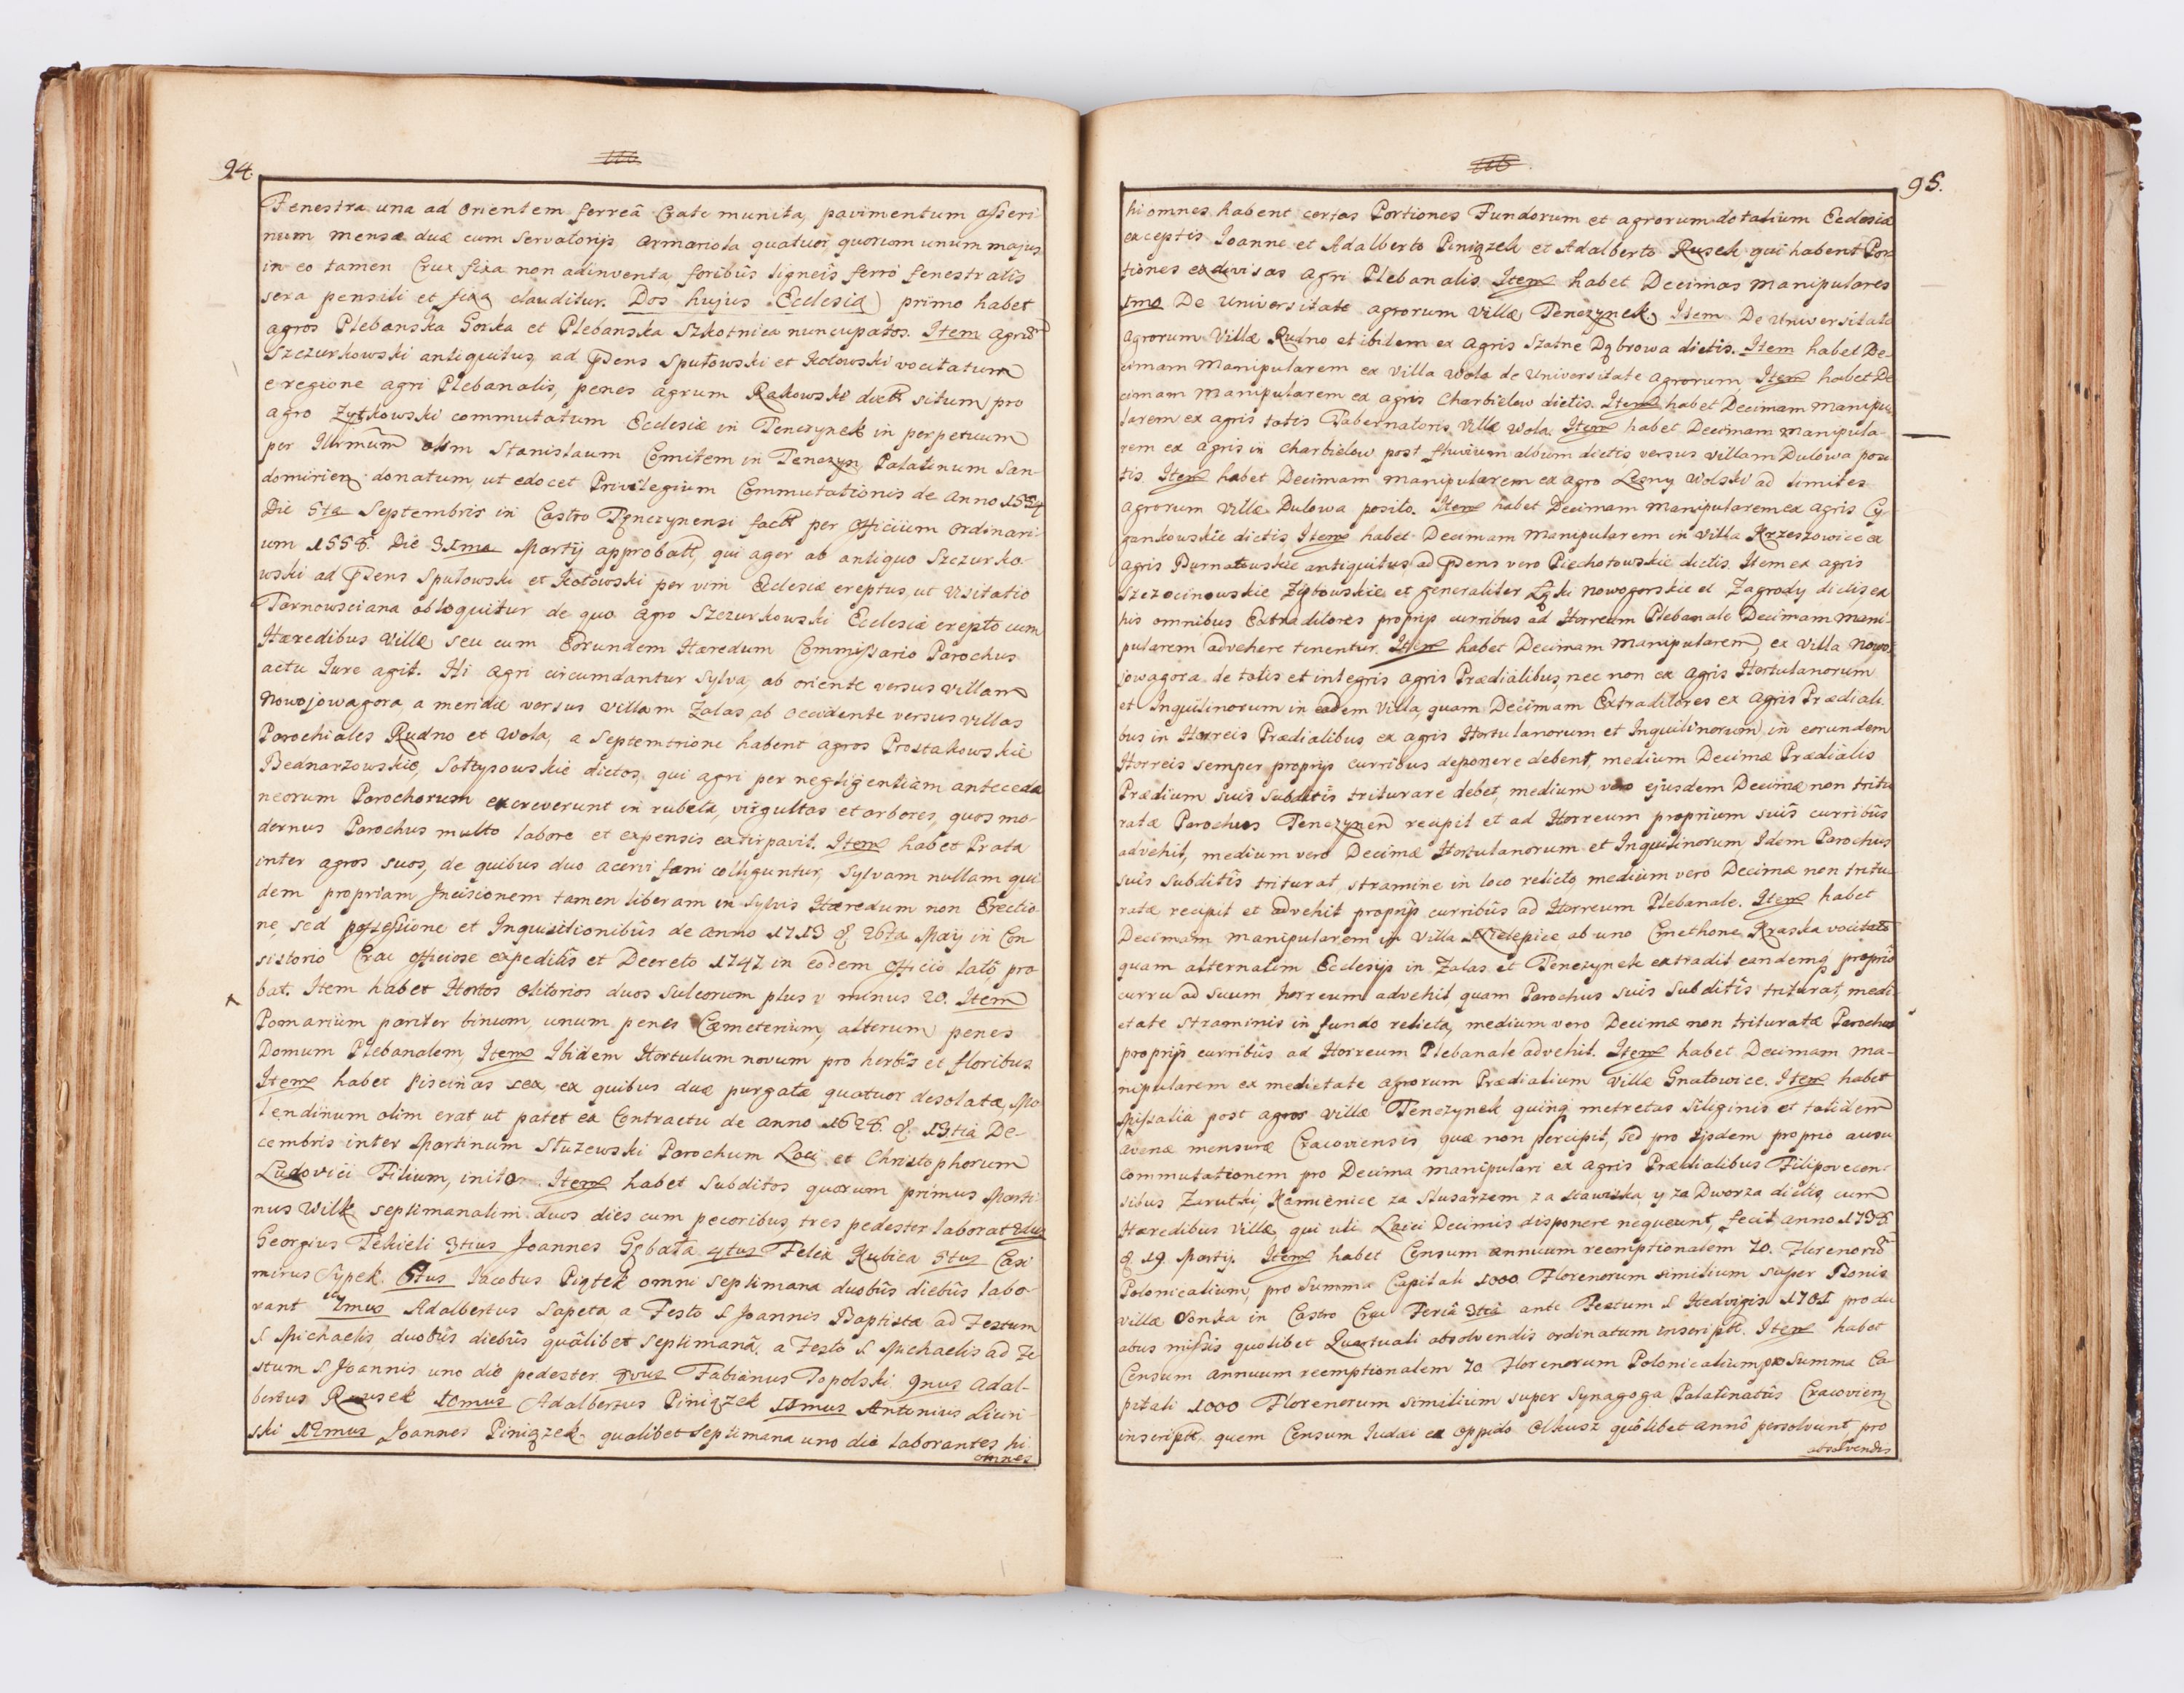 94.
Fenestra una ad Orientem ferreâ Crate munita, pavimentum asseri-
num mensæ duæ cum servatorijs, armariola quatuor, quorum unum majus,
in eo tamen Crux fixa non adinventa, foribus ligneis ferro fenestralis
sera pensili et fixa clauditur. Dos hujus Ecclesiæ primo habet
agros Plebanska Gorka et Plebanska Szkotnica nuncupatos. Item agrum
Szczurkowski antiquitus, ad Psens Sputowski et Kotowski vocitatum
e regione agri Plebanalis, penes agrum Rakowski dictt situm, pro
agro Zytkowski commutatum Ecclesiæ in Tenczynek in perpetuum
per Illrimum olim Stanislaum Comitem in Tenczyn Palatinum San-
domirien donatum, ut edocet Privilegium Commutationis de Anno 1554
Die 5ta Septembris in Castro Tenczynensi factt per Officium Ordinari-
um 1558. Die 31ma Martij approbatt, qui ager ab antiquo Szczurko-
wski ad Psens Sputowski et Kotowski per vim Ecclesiæ ereptus, ut Visitatio
Tarnowsciana obloquitur de quo agro Szczurkowski Ecclesiæ erepto cum
Hæredibus Villæ seu cum Eorundem Hæredum Commissario Parochus
actu Iure agit. Hi agri circumdantur sylva, ab oriente versus villam
Nowojowagora a meridie versus villam Zalas, ab Occidente versus villas
Parochiales Rudno et Wola, a Septemtrione habent agros Prostakowskie
Bednarzowskie, Soltysowskie dictos, qui agri per negligentiam anteceda
neorum Parochorum excreverunt in rubeta, virgultas et arbores, quos mo-
dernus Parochus multo labore et expensis extirpavit. Item habet Prata
inter agros suos, de quibus duo acervi fæni colliguntur, Sylvam nullam qui
dem propriam Incisionem tamen liberam in Sylvis Hæredum non Erectio-
ne, sed possessione et Inquisitionibus de anno 1713 & 26ta May in Con-
sistorio Crac officiose expeditis et Decreto 1747 in eodem officio lato pro
bat. Item habet Hortos Olitorios duos sulcorum plus v minus 20. Item
Pomarium pariter binum, unum penes Cæmeterium, alterum penes
Domum Plebanalem, Item Ibidem Hortulum novum pro herbis et floribus
Item habet piscinas sex, ex quibus duæ purgatæ quatuor desolatæ, Mo
lendinum olim erat ut patet ex Contractu de anno 1628. & 13tia De-
cembris inter Martinum Stuzewski Parochum Loci et Christophorum
Ludovici Filium, inito. Item habet Subditos quorum primus Marti
nus Wilk septimanatim duos dies cum pecoribus, tres pedester laborat 2dus
Georgius Tekieli 3tius Joannes Gębala 4tus Felix Kubica 5tus Casi
mirus Sypek. 6tus Jacobus Piątek omni septimana duobus diebus labo-
rant 7mus Adalbertus Sapeta a Festo S Joannis Baptistæ ad Festum
S Michaelis duobus diebus quâlibet septimanâ, a Festo S Michaelis ad Fe
stum S Joannis uno die pedester. 8vus Fabianus Topolski 9nus Adal-
bertus Rusek 10mus Adalbertus Piniązek 11mus Antonius Licin-
ski 12mus Joannes Piniązek qualibet septimana uno die laborantes hi
omnes
95.
hi omnes habent certas Portiones Fundorum et agrorum dotalium Ecclesiæ
exceptis Joanne et Adalberto Piniązek et Adalberto Rusek qui habent Por
tiones ex divisas agri Plebanalis. Item habet Decimas manipulares
1mo De Universitate agrorum villæ Tenczynek, Item De Universitate
agrorum Villæ Rudno et ibidem ex agris Szatne Dąbrowa dictis. Item habet De-
cimam manipularem ex Villa Wola de Universitate agrorum, Item habet De
cimam manipularem ex agris Charbielow dictis. Item habet Decimam manipu
larem ex agris totis Tabernatoris Villæ Wola. Item habet Decimam manipula-
rem ex agris in Charbielow post fluvium album dictis versus villam Dulowa posi
tis. Item habet Decimam manipularem ex agro Lesny Wolski ad limites
agrorum villæ Dulowa posito. Item habet Decimam manipularem ex agris Cy-
gankowskie dictis Item habet Decimam manipularem in Villa Krzeszowice ex
agris Burnatowskie antiquitus, ad Psens vero Piechotowskie dictis. Item ex agris
Szczocinowskie Zyptowskie et generaliter Łąki nowogorskie et Zagrody dictis ex
his omnibus Extraditores proprijs curribus ad Horreum Plebanale Decimam mani-
pularem advehere tenentur. Item habet Decimam manipularem ex Villa Nowo
jowagora de totis et integris agris Prædialibus, nec non ex agris Hortulanorum
et Inquilinorum in eadem Villa, quam Decimam Extraditores ex agris Prædiali-
bus in Horreis Prædialibus, ex agris Hortulanorum et Inquilinorum in eorundem
Horreis semper proprijs curribus deponere debent, medium Decimæ Prædialis
Prædium suis subditis triturare debet, medium vero ejusdem Decimæ non tritu
ratæ Parochus Tenczynen recipit et ad Horreum proprium suis curribus
advehit, medium vero Decimæ Hortulanorum et Inquilinorum Idem Parochus
suis Subditis triturat, stramine in loco relicto, medium vero Decimæ non tritu-
ratæ recipit et advehit proprijs curribus ad Horreum Plebanale. Item habet
Decimam manipularem in Villa Nielepice ab uno Cmethone Kraska vocitato
quam alternatim Ecclesijs in Zalas et Tenczynek extradit eandemq proprio
curru ad suum horreum advehit, quam Parochus suis Subditis triturat, medi-
etate straminis in fundo relicta, medium vero Decimæ non trituratæ Parochus
proprijs curribus ad Horreum Plebanale advehit. Item habet Decimam ma-
nipularem ex medietate agrorum Prædialium Villæ Gnatowice. Item habet
Missalia post agros villæ Tenczynek quinq metretas siliginis et totidem
avenæ mensuræ Cracoviensis, quæ non percipit, sed pro ijsdem proprio ausu
commutationem pro Decima manipulari ex agris Prædialibus Filipovecen-
sibus Zarutki, Kamienice za Slusarzem za Stawiska, y za Dworza dictis cum
Hæredibus Villæ, qui uti Laici Decimis disponere nequeunt, fecit, anno 1738.
& 19 Martij. Item habet Censum annuum reemptionalem 70. Florenorum
Polonicalium, pro Summa Capitali 1000 Florenorum similium super Bonis
villæ Sonka in Castro Crac Feriâ 3tiâ ante Festum S Hedvigis 1701 pro du
abus missis quolibet Quartuali absolvendis ordinatum inscriptt. Item habet
Censum annuum reemptionalem 70 Florenorum Polonicalium pro Summa Ca-
pitali 1000 Florenorum similium super Synagoga Palatinatûs Cracovien
inscriptt, quem Censum Iudæi ex oppido Olkusz quôlibet annô persolvunt, pro
absolvendis